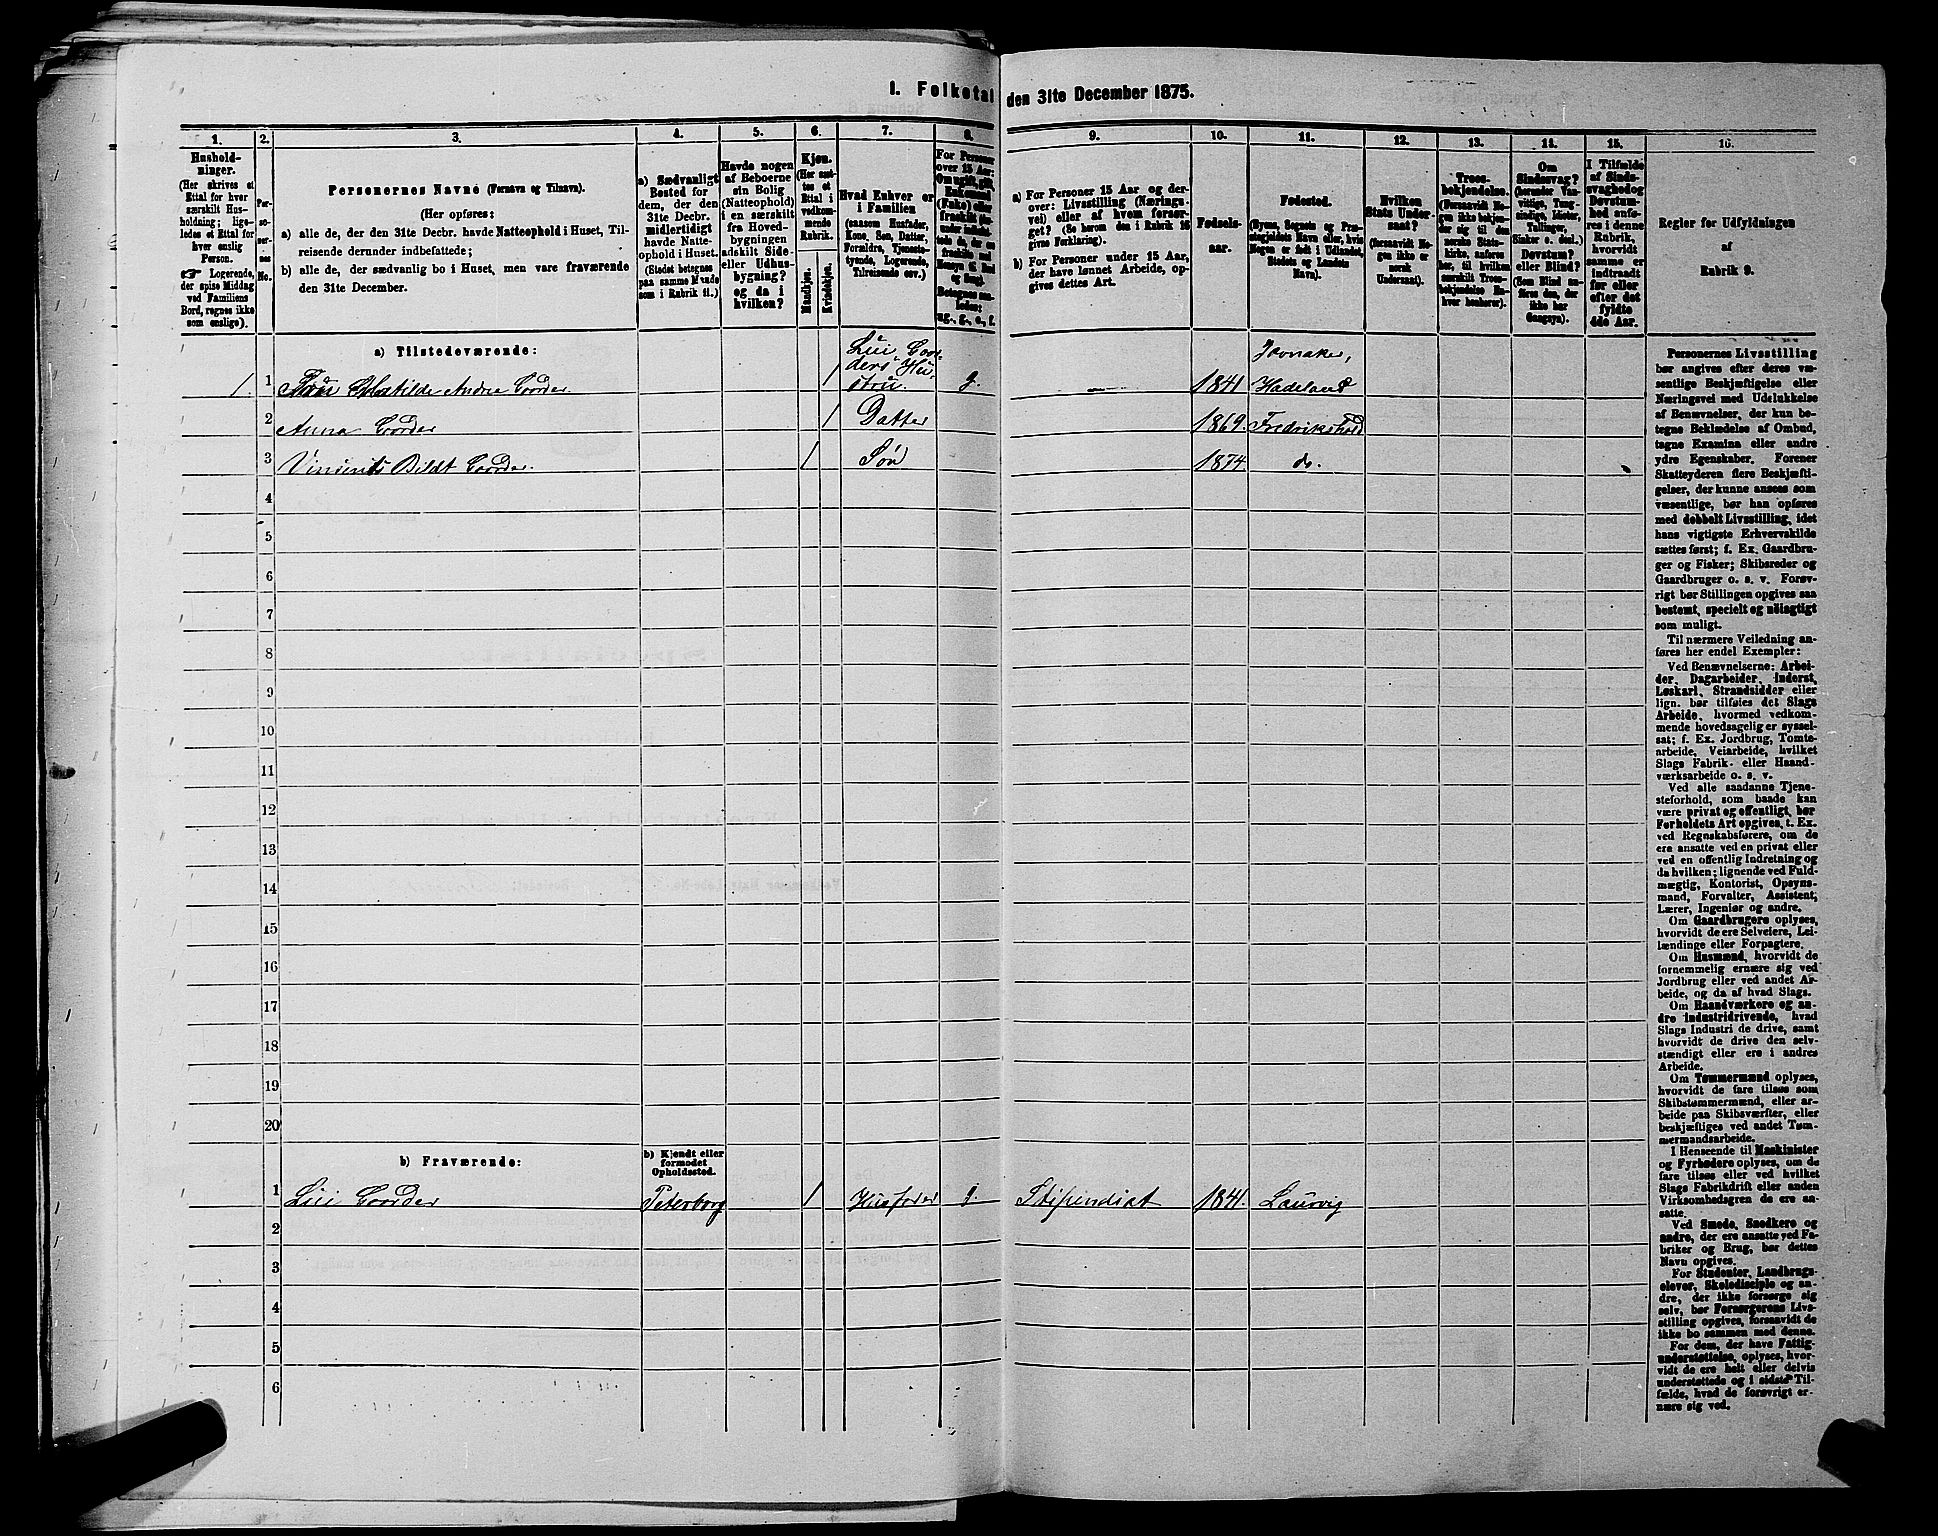 I. Folketal den 31te December 1875.
1. 2. 3. 4. 5. 6. 7. 8. 9. 10. 11. 12. 13. 14. 15. 16.
Hushold-
ninger.
(Her skrives et
Ettal for hver
særskilt Hus-
holdning; lige-
ledes et Ettal for
hver enslig
Person.
☞ Logerende,
der spise Middag
ved Familiens
Bord, regnes ikke
som enslige).
Per-
so-
ner-
nes
No.
Personernes Navne (Fornavn og Tilnavn).
(Her opføres:
a) alle de, der den 31te Decbr. havde Natteophold i Huset, Til-
reisende derunder indbefattede;
b) alle de, der sædvanlig bo i Huset, men vare fraværende
den 31te December.
a) Sædvanligt
Bosted for
dem, der den
31te Decbr.
midlertidigt
havde Natte-
ophold i Huset.
(Stedet betegnes
paa samme Maade
som i Rubrik 11.)
Havde nogen
af Beboerne
sin Bolig
(Natteophold)
i en særskilt
fra Hoved-
bygningen
adskilt Side-
eller Udhus-
bygning?
og da i
hvilken?
Kjøn.
(Her sæt-
tes et
Ettal i
vedkom-
mende
Rubrik.
Mandkjøn.
Kvindekjøn.
Hvad Enhver er
i Familien
(saasom Husfader,
Kone, Søn, Datter,
Forældre, Tjeneste-
tyende, Logerende,
Tilreisende osv.)
For Personer
over 15 Aar:
Om ugift, gift,
Enkemand
(Enke) eller
fraskilt
Betegnes saa-
ledes:
ug., g., e., f.
a) For Personer 15 Aar og der-
over: Livsstilling (Nærings-
vei) eller af hvem forsør-
get? (Se herom den i Rubrik 16
givne Forklaring).
b) For Personer under 15 Aar,
der have lønnet Arbeide, op-
gives dettes Art.
Fødsels-
aar.
Fødested.
(Byens, Sognets og Præ-
stegjeldets Navn eller, hvis
Nogen er født i Udlandet,
Stedets og Landets
Navn).
Hvilken
Stats Under-
saat?
(forsaavidt No-
gen ikke er
norsk
Undersaat).
Troes-
bekjendelse.
(Forsaavidt No-
gen ikke bekjen-
der sig til den
norske Stats-
kirke, anføres
her, til hvilken
særskilt Troes-
bekjendelse En-
hver henhører).
Om
Sindssvag?
(herunder Van-
vittige, Tung-
sindige, Idioter,
Tullinger,
Sinker o. desl.)
Døvstum?
eller Blind?
(Som Blind an-
føres den, der
ikke har
Gangsyn).
I Tilfælde
af Sinds-
svaghed og
Døvstum-
hed anfø-
res i denne
Rubrik,
hvorvidt
samme er
indtraadt
før eller
efter det
fyldte
4de Aar.
Regler for Udfyldningen
af
Rubrik 9.
a) Tilstedeværende:
1. 1 Fru Mathilde Andrea Corder 1 Lüi Cor-
ders Hu-
stru. g. — 1841 Jevnaker,
Hadeland
2 Anna Corder 1 Datter 1869. Fredrikshald
3 Vincents Bildt Corder. 1 Søn 1874. do.
4
5
6
7
8
9
10
11
12
13
14
15
16
17
18
19
20
b) Fraværende:
b) Kjendt eller
formodet
Opholdssted.
1 Lüi Corder Peterborg 1 Husfader g. Stipendiat 1841. Laurvig
2
3
4
5
6
Personernes Livsstilling
bør angives efter deres væ-
sentlige Beskjæftigelse eller
Næringsvei med Udelukkelse
af Benævnelser, der kun be-
tegne Beklædelse af Ombud,
tagne Examina eller andre
ydre Egenskaber. Forener
Skatteyderen flere Beskjæfti-
gelser, der kunne ansees som
væsentlige, bør han opføres
med dobbelt Livsstilling, idet
hans vigtigste Erhvervskilde
sættes først; f. Ex. Gaardbru-
ger og Fisker; Skibsreder og
Gaardbruger o. s. v. Forøv-
rigt bør Stillingen opgives saa
bestemt, specielt og nøiagtigt
som muligt.
Til nærmere Veiledning an-
føres her endel Exempler:
Ved Benævnelserne: Arbei-
der, Dagarbeider, Inderst,
Løskarl, Strandsidder eller
lign. bør tilføies det Slags
Arbeide, hvormed vedkom-
mende hovedsagelig er syssel-
sat; f. Ex. Jordbrug, Tomte-
arbeide, Veiarbeide, hvilket
Slags Fabrik- eller Haand-
værksarbeide o. s. v.
Ved alle saadanne Tjene-
steforhold, som baade kan
være privat og offentligt, bør
Forholdets Art opgives, t. Ex.
ved Regnskabsførere, om de
ere ansatte ved en privat eller
ved en offentlig Indretning og
da hvilken; lignende ved Fuld-
mægtig, Kontorist, Opsyns-
mand, Forvalter, Assistent,
Lærer, Ingeniør og andre.
Om Gaardbrugere oplyses,
hvorvidt de ere Selveiere, Lei-
lændinge eller Forpagtere.
Om Husmænd, hvorvidt de
fornemmelig ernære sig ved
Jordbrug eller ved andet Ar-
beide, og da af hvad Slags.
Om Haandværkere og an-
dre Industridrivende, hvad
Slags Industri de drive, samt
hvorvidt de drive den selv-
stændigt eller ere i andres
Arbeide.
Om Tømmermænd oplyses,
hvorvidt de fare tilsøs som
Skibstømmermænd, eller ar-
beide paa Skibsværfter, eller
beskjæftiges ved andet Tøm-
mermandsarbeide.
I Henseende til Maskinister
og Fyrbødere oplyses, om de
fare tilsøs eller ved hvilket
Slags Fabrikdrift eller anden
Virksomhedsgren de ere an-
satte.
Ved Smede, Snedkere og
andre, der ere ansatte ved Fa-
briker og Brug, bør dettes
Navn opgives.
For Studenter, Landbrugs-
elever, Skoledisciple og an-
dre, der ikke forsørge sig
selv, bør Forsørgerens Livs-
stilling opgives, forsaavidt de
ikke bo sammen med denne.
For dem, der have Fattig-
understøttelse, oplyses, hvor-
vidt de ere helt eller delvis
understøttede og i sidste Til-
fælde, hvad de forøvrigt er-
nære sig ved.